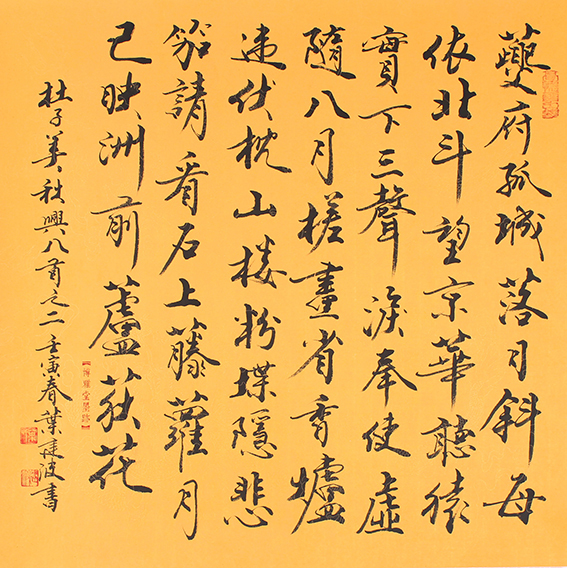 夔府孤城落日斜每
依北斗望京華聽猿
實下三聲淚奉使虛
隨八月槎畫省香爐
違伏枕山樓粉堞隱悲
笳請看石上藤蘿月
已映洲前蘆荻花
杜子美秋興八首之二壬寅春葉建波書